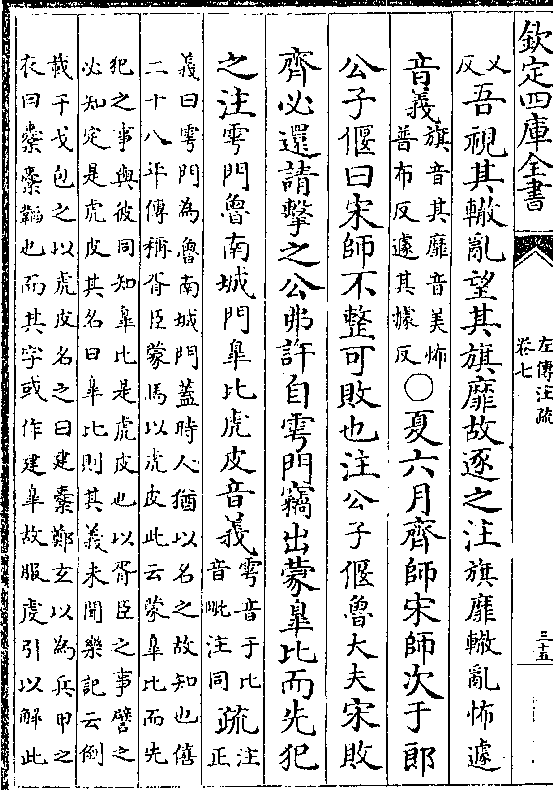 欽定四庫全書
左傳注疏
卷七
三十五
又
反
吾視其轍亂望其旗靡故逐之注旗靡轍亂怖遽
音義旗音其靡音美怖
普布反遽其據反
○夏六月齊師宋師次于郎
公子偃曰宋師不整可敗也注公子偃魯大夫宋敗
齊必還請擊之公弗許自雩門竊出蒙臯比而先犯
之注雩門魯南城門臯比虎皮音義雩音于比
音毗注同
疏注
正
義曰雩門為魯南城門蓋時人猶以名之故知也僖
二十八年傳稱胥臣蒙馬以虎皮此云蒙臯比而先
犯之事與彼同知臯比是虎皮也以胥臣之事譬之
必知定是虎皮其名曰臯比則其義未聞樂記云倒
載干戈包之以虎皮名之曰建櫜鄭玄以為兵甲之
衣曰櫜櫜韜也而其字或作建臯故服虔引以解此